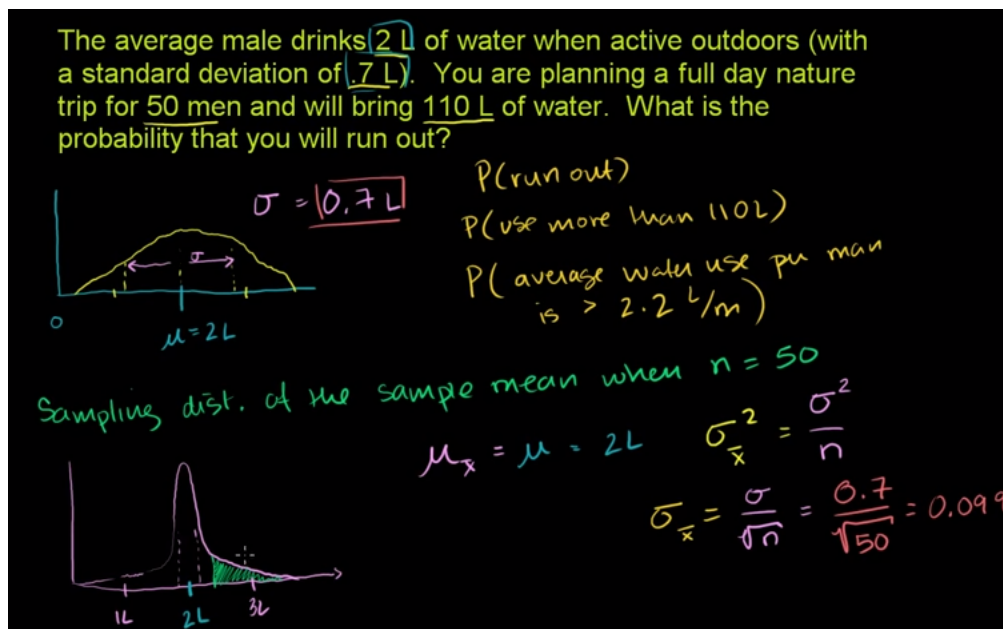 The average male drinks 2 L of water when active outdoors (with
a standard deviation of .7 L). You are planning a full day nature
trip for 50 men and will bring 110 L of water. What is the
probability that you will run out?
σ = 0.7 L
P(run out)
P(use more than 110L)
P(average water use per man
is > 2.2 L/m)
σ
0
μ = 2L
Sampling dist. of the sample mean when n = 50
μx̄ = μ = 2L
σx̄² = σ²/n
σx̄ = σ/√n = 0.7/√50 = 0.099
1L 2L 3L